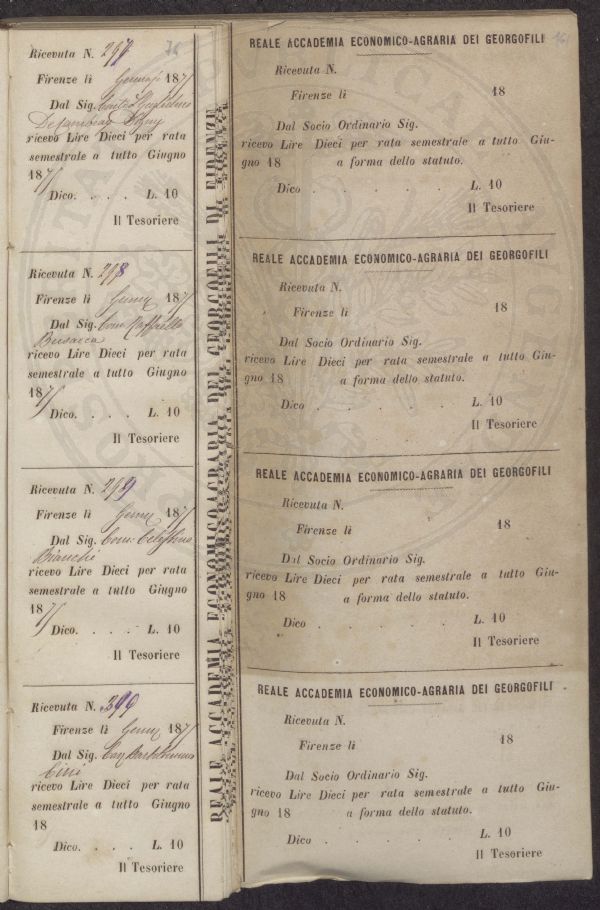 Ricevuta N. 297
76
Firenze lì Gennajo 1871
Dal Sig. Conte Guglielmo
ricevo Lire Dieci per rata
semestrale a tutto Giugno
1871
Dico. . . . L. 10
Il Tesoriere
Ricevuta N. 298
Firenze lì 1871
Dal Sig. Raffaello
Busacca
ricevo Lire Dieci per rata
semestrale a tutto Giugno
1871
Dico. . . . L. 10
Il Tesoriere
Ricevuta N. 299
Firenze lì 1871
Dal Sig. Com: Celestino
Bianchi
ricevo Lire Dieci per rata
semestrale a tutto Giugno
1871
Dico. . . . L. 10
Il Tesoriere
Ricevuta N.
Firenze lì 1871
Dal Sig. Cav Bartolommeo
Cini
ricevo Lire Dieci per rata
semestrale a tutto Giugno
18
Dico. . . . L. 10
Il Tesoriere
REALE ACCADEMIA ECONOMICO-AGRARIA DEI GEORGOFILI DI FIRENZE
REALE ACCADEMIA ECONOMICO-AGRARIA DEI GEORGOFILI
Ricevuta N.
Firenze lì 18
Dal Socio Ordinario Sig.
ricevo Lire Dieci per rata semestrale a tutto Giu-
gno 18 a forma dello statuto.
Dico . . . . L. 10
Il Tesoriere
REALE ACCADEMIA ECONOMICO-AGRARIA DEI GEORGOFILI
Ricevuta N.
Firenze lì 18
Dal Socio Ordinario Sig.
ricevo Lire Dieci per rata semestrale a tutto Giu-
gno 18 a forma dello statuto.
Dico . . . . L. 10
Il Tesoriere
REALE ACCADEMIA ECONOMICO-AGRARIA DEI GEORGOFILI
Ricevuta N.
Firenze lì 18
Dal Socio Ordinario Sig.
ricevo Lire Dieci per rata semestrale a tutto Giu-
gno 18 a forma dello statuto.
Dico . . . . L. 10
Il Tesoriere
REALE ACCADEMIA ECONOMICO-AGRARIA DEI GEORGOFILI
Ricevuta N.
Firenze lì 18
Dal Socio Ordinario Sig.
ricevo Lire Dieci per rata semestrale a tutto Giu-
gno 18 a forma dello statuto.
Dico . . . . L. 10
Il Tesoriere